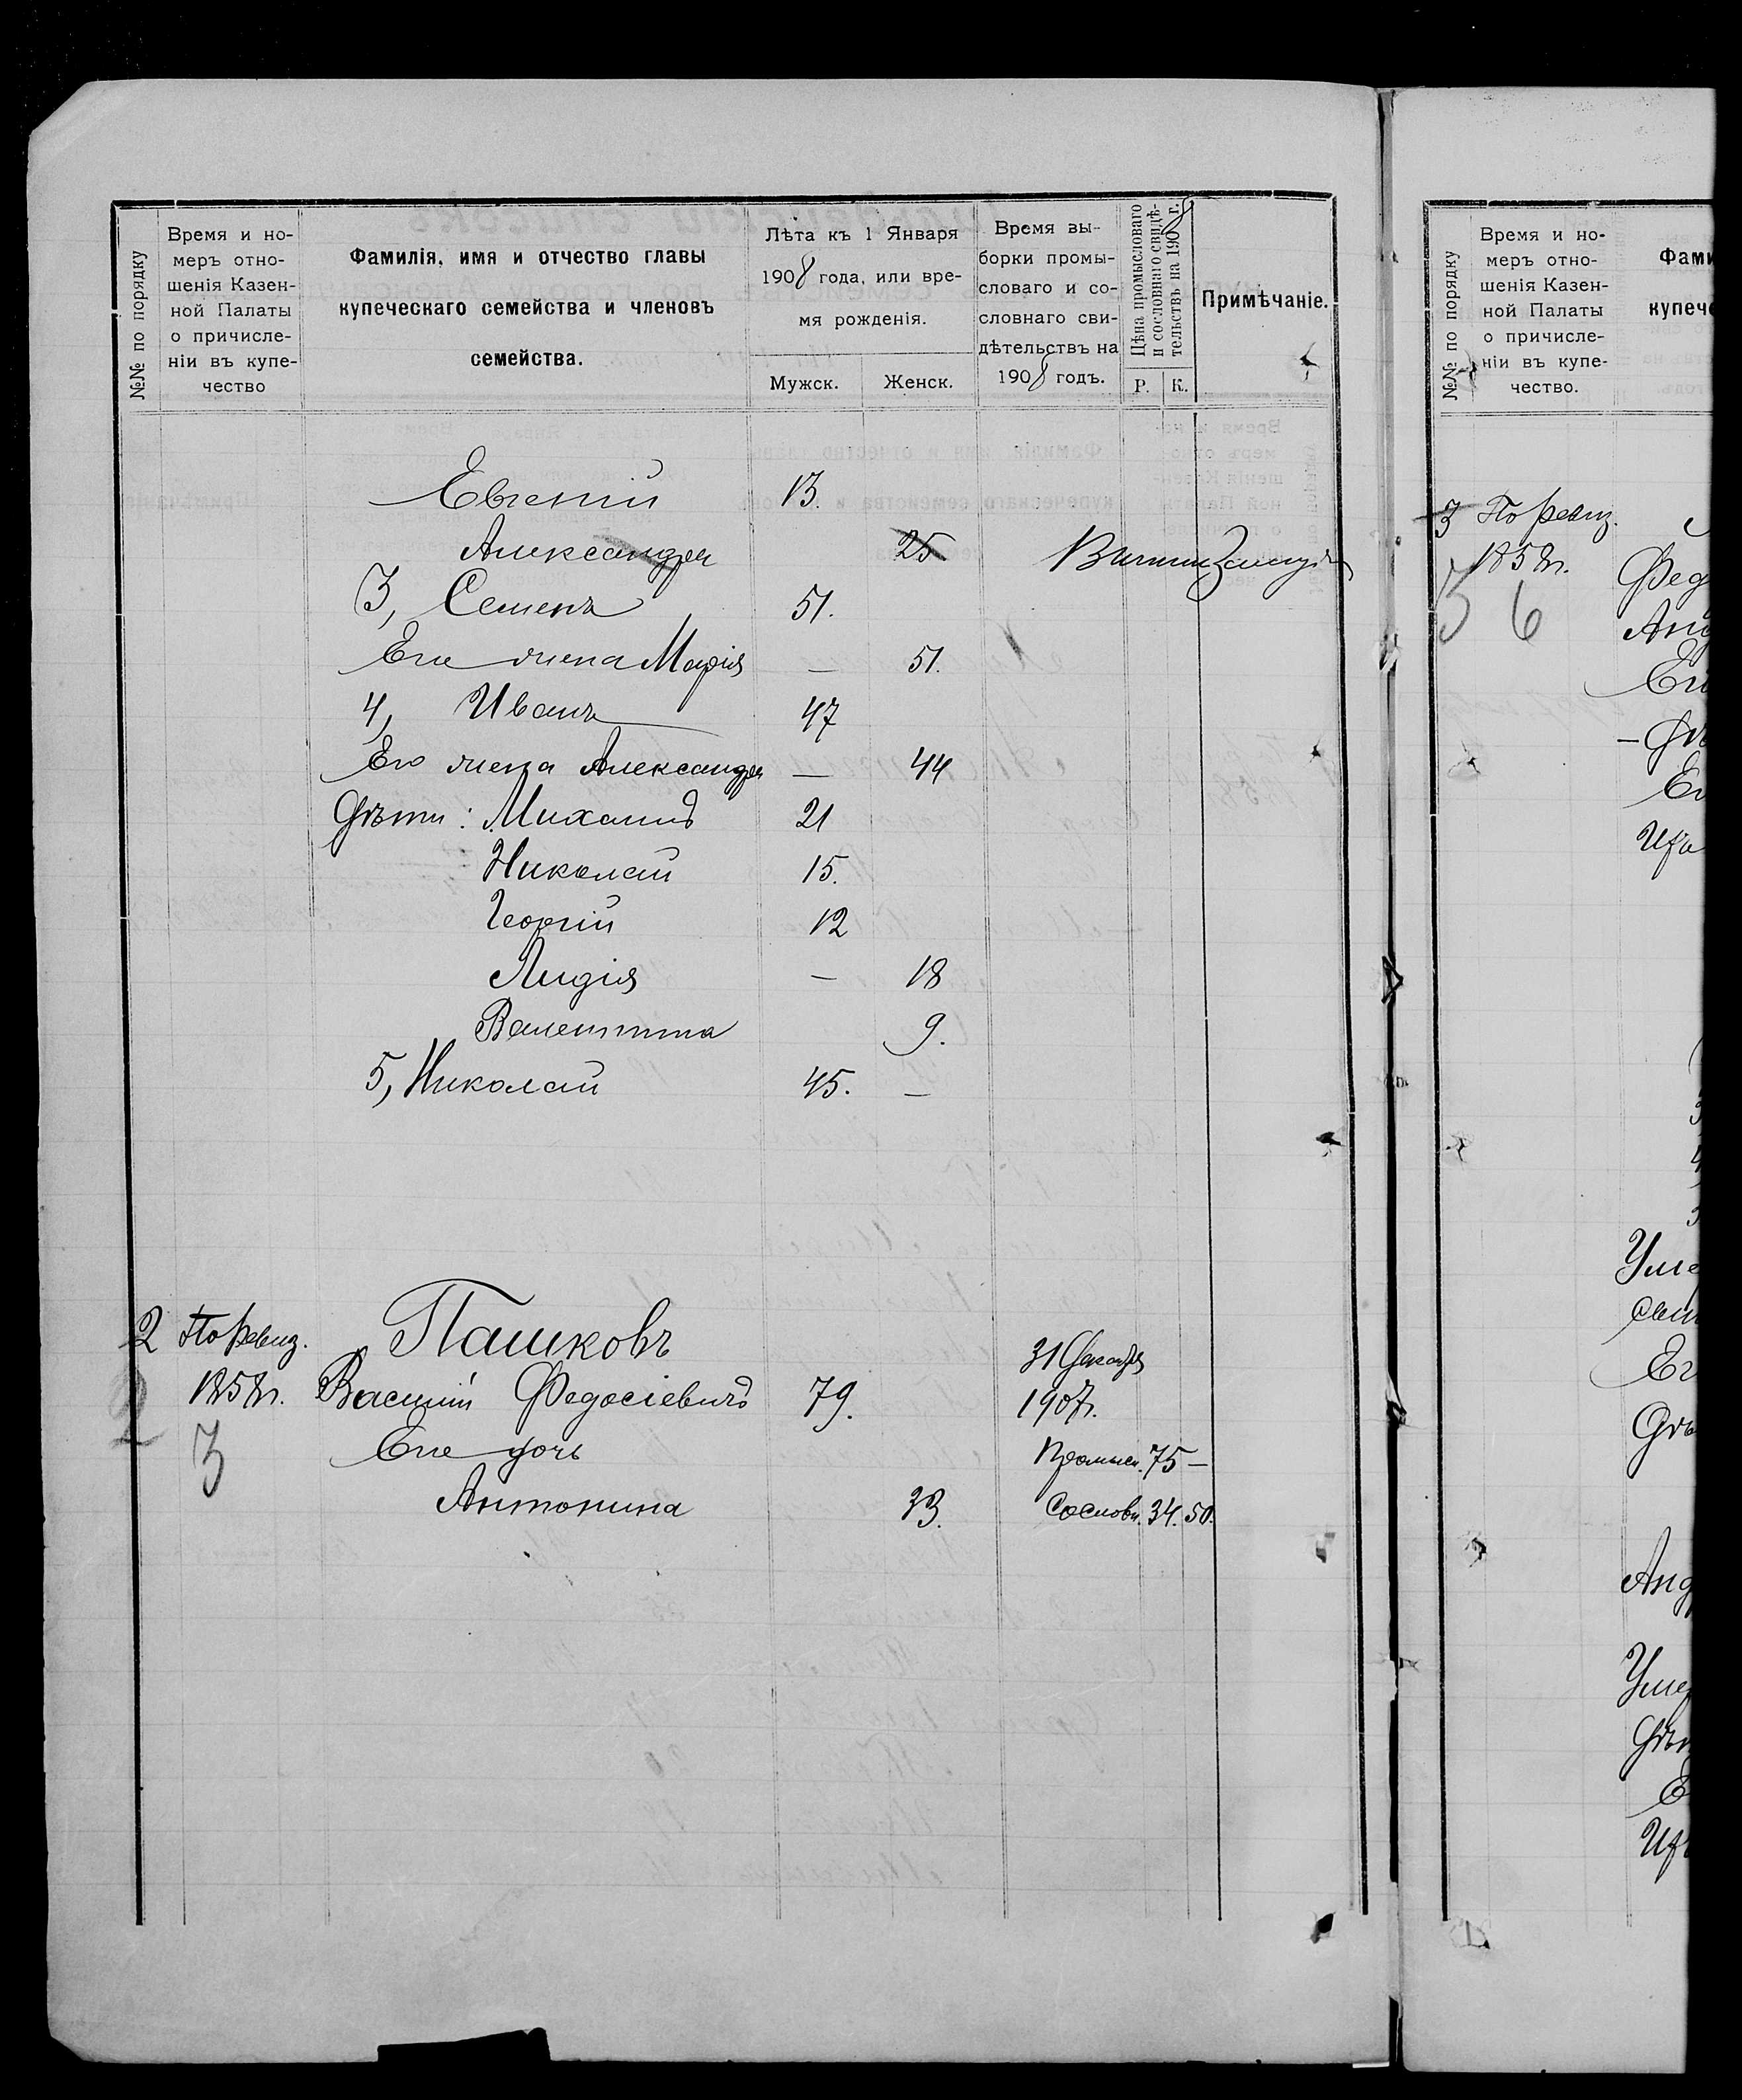 №№ по порядку
Время и но-
меръ отно-
шенія Казен-
ной Палаты
о причисле-
ніи въ купе-
чество
Фамилія, имя и отчество главы
купеческаго семейства и членовъ
семейства.
Лѣта къ 1 Января
1908 года, или вре-
мя рожденія.
Мужск. Женск.
Время вы-
борки промы-
словаго и со-
словнаго сви-
дѣтельствъ на
1908 годъ.
Цѣна промысловаго
и сословнаго свидѣ-
тельствъ на 1908 г.
Р. К.
Примѣчаніе.
Евгеній 13.
Александра 25
3, Семенъ 51.
Его жена Марія — 51.
4, Иванъ 47
Его жена Александра — 44
Дѣти: Михаилъ 21
Николай 15.
Георгій 12
Лидія — 18
Валентина 9.
5, Николай 45. —
2 По ревиз. Пашковъ 31 Декабря
1858г. Василій Федосіевичъ 79. 1907г.
2
3 Его дочь Промысл. 75 —
Антонина 33. Сословн. 34. 50.
№№ по порядку
Время и но-
меръ отно-
шенія Казен-
ной Палаты
о причисле-
ніи въ купе-
чество.
Фами
купече
3 По ревиз.
1858г. Фед
3 6 Анд
Ег
Ег
Уме
Ег
Анд
Уме